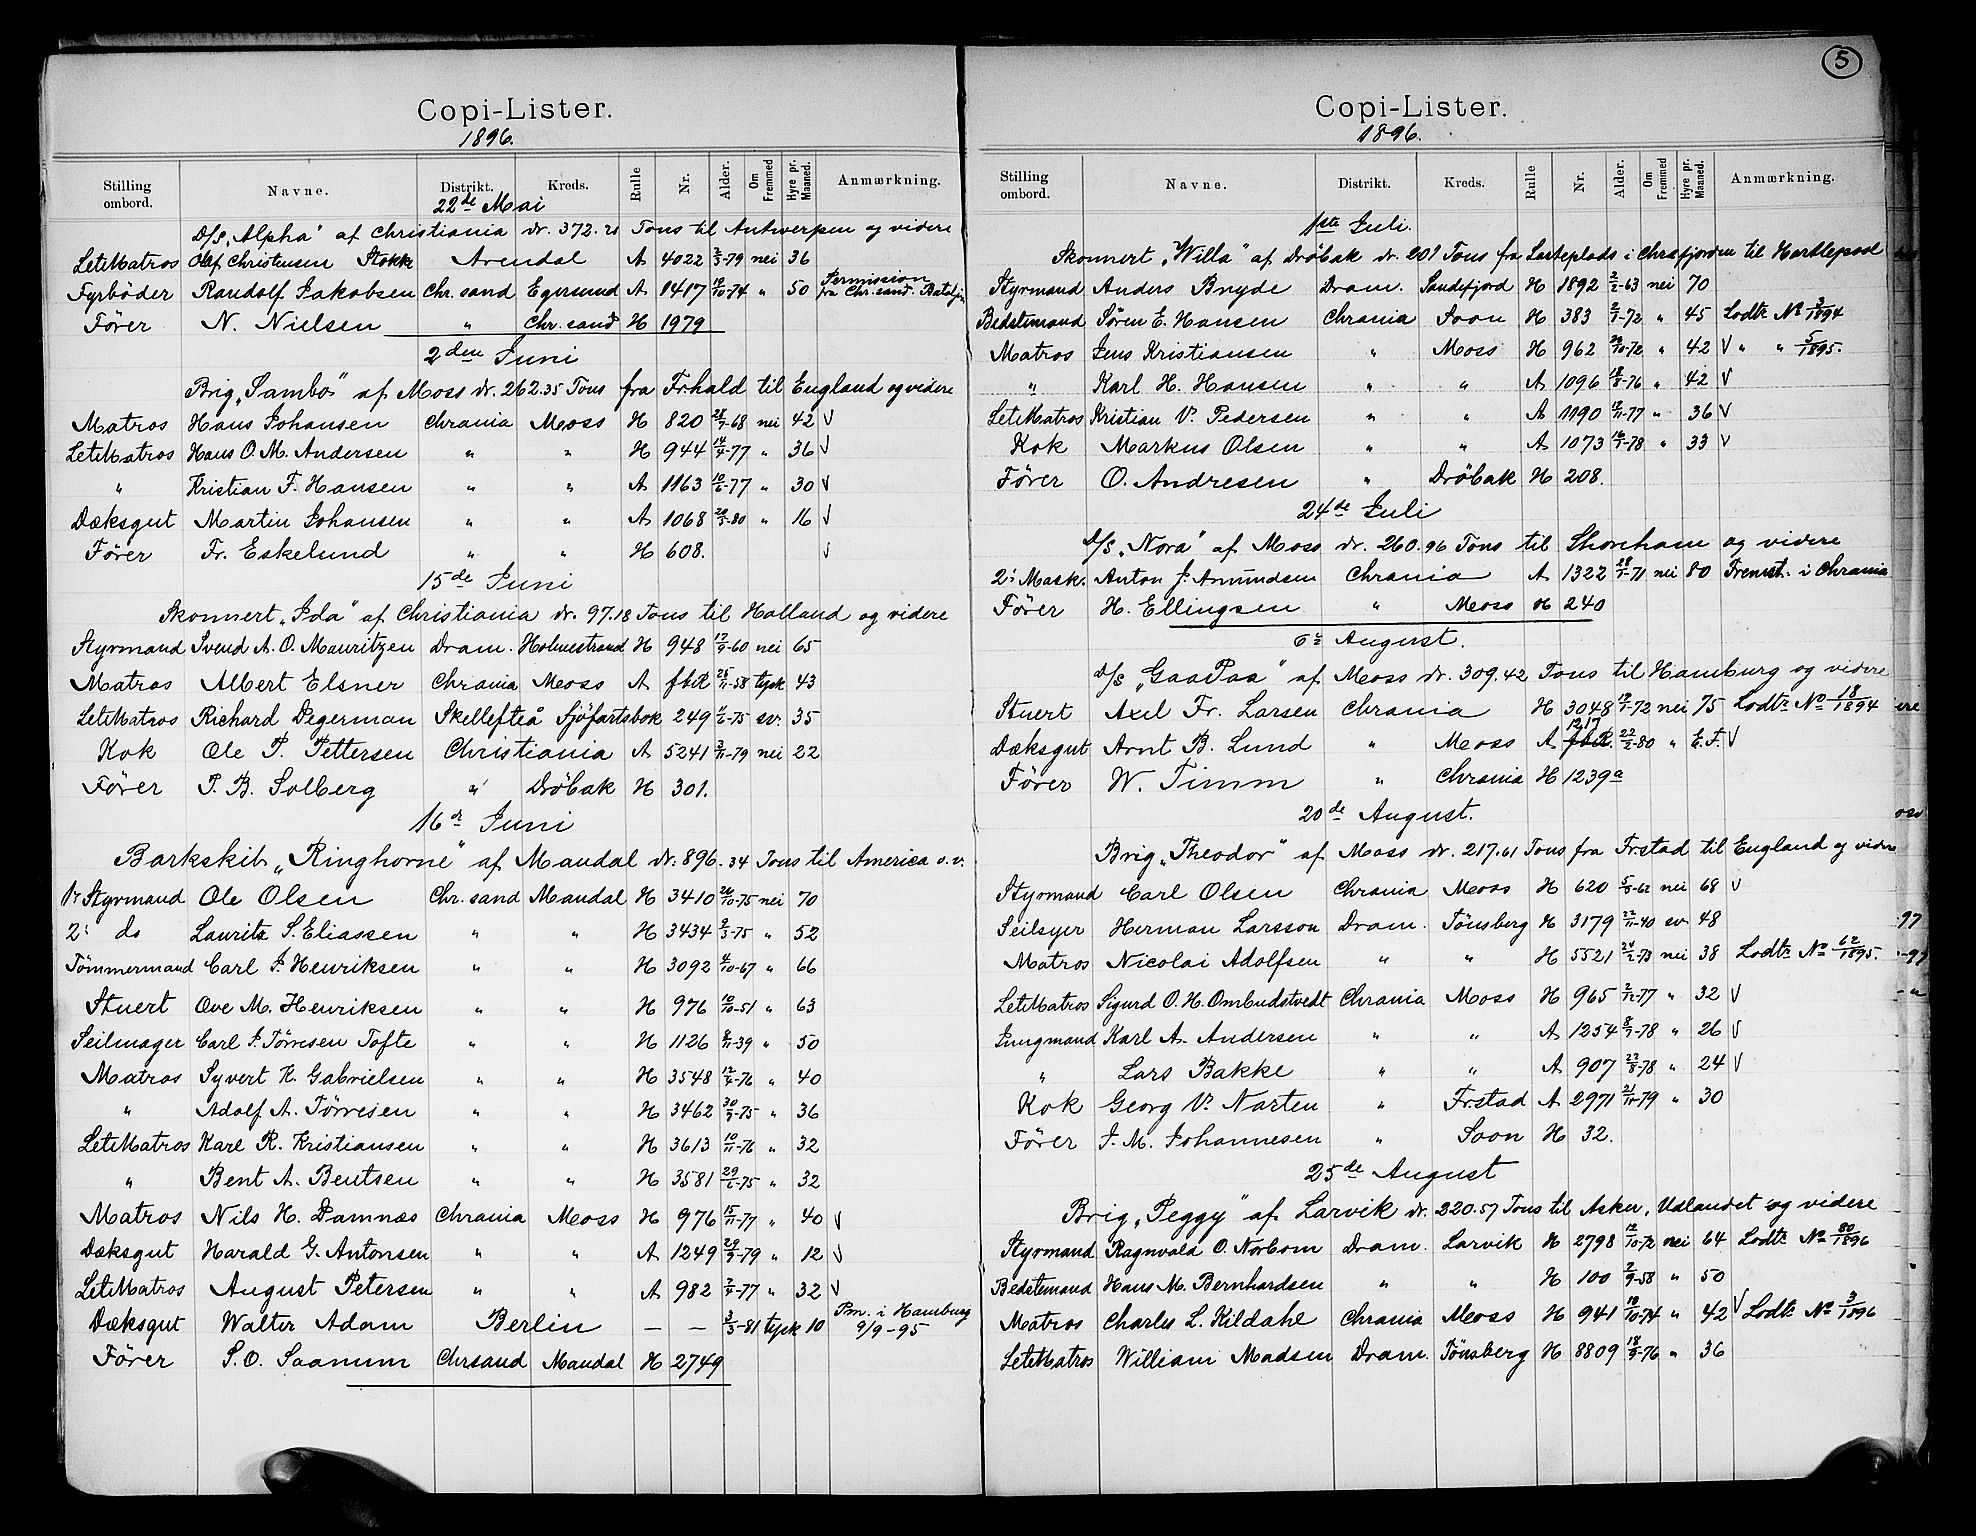 Copi-Lister.
1896.
Stilling ombord. Navne. Distrikt. Kreds. Rulle Nr. Alder. Om Fremmed Hyre pr. Maaned. Anmærkning.
22de Mai
D/S „Alpha" af Christiania dr. 372.21 Tons til Antwerpen og videre
LetMatros Olaf Christensen Stokk Arendal A 4022 2/3-79 nei 36
Fyrböder Randolf Jakobsen Chr.sand Egersund A 1417 19/10-74 " 50 Permission fra Chr.sand. Batalj.
Förer N. Nielsen " Chr.sand H 1979
2den Juni
Brig „Sambo" af Moss dr. 262.35 Tons fra Frhald til England og videre
Matros Hans Johansen Chrania Moss H 820 28/7-68 nei 42 V
LetMatros Hans O. M. Andersen " " H 944 14/4-77 " 36 V
" Kristian F. Hansen " " A 1163 10/6-77 " 30 V
Dæksgut Martin Johansen " " A 1068 29/5-80 " 16 V
Förer Fr. Eskelund " " H 608. V
15de Juni
Skonnert „Ida" af Christiania dr. 97.18 Tons til Holland og videre
Styrmand Svend A. O. Mauritzen Dram. Holmestrand H 948 17/9-60 nei 65
Matros Albert Elsner Chrania Moss A fbR 25/11-58 tysk 43
LetMatros Richard Degerman Skellefteå Sjöfartsbok 249 4/2-75 sv. 35
Kok Ole P. Pettersen Christiania A 5241 3/11-79 nei 22
Förer P. B. Solberg " Dröbak H 301.
16de Juni
Barkskib „Ringhorne" af Mandal dr. 896.34 Tons til America o.v.
1ste Styrmand Ole Olsen Chr.sand Mandal H 3410 26/10-75 nei 70
2: do Lauritz S. Eliassen " " H 3434 9/3-75 " 52
Tömmermand Carl J. Henriksen " " H 3092 4/10-67 " 66
Stuert Ove M. Henriksen " " H 976 10/10-51 " 63
Seilmager Carl J. Törresen Tofte " " H 1126 8/11-39 " 50
Matros Syvert K. Gabrielsen " " H 3548 12/4-76 " 40
" Adolf A. Törresen " " H 3462 30/9-75 " 36
LetMatros Karl R. Kristiansen " " H 3613 10/11-76 " 32
" Bent A. Bentsen " " H 3581 29/6-75 " 32
Matros Nils H. Damnæs Chrania Moss H 976 15/11-77 " 40 V
Dæksgut Harald G. Antonsen " " A 1249 29/9-79 " 12 V
LetMatros August Petersen " " A 982 2/4-77 " 32 V
Dæksgut Walter Adam Berlin — — 3/3-81 tysk 10 Pm. i Hamburg 9/9-95
Förer S. O. Saanum Chrsand Mandal H 2749
5
Copi-Lister.
1896.
Stilling ombord. Navne. Distrikt. Kreds. Rulle Nr. Alder. Om Fremmed Hyre pr. Maaned. Anmærkning.
1ste Juli.
Skonnert „Willa" af Dröbak dr. 201 Tons fra Lasteplads i Chrafjorden til Hartlepool
Styrmand Anders Bryde Dram. Sandefjord H 1892 2/2-63 nei 70
Bedstemand Sören E. Hansen Chrania Soon H 383 2/1-72 " 45 Lodtr. No 3/1894
Matros Jens Kristiansen " Moss H 962 29/10-72 " 42 V " " 5/1895.
" Karl H. Hansen " " A 1096 18/8-76 " 42 V
LetMatros Kristian V. Pedersen " " A 1190 12/11-77 " 36 V
Kok Markus Olsen " " A 1073 16/1-78 " 33 V
Förer O. Andresen " Dröbak H 208.
24de Juli
D/S „Nora" af Moss dr. 260.96 Tons til Shoreham og videre
2: Mask. Anton J. Amundsen Chrania A 1322 28/1-71 nei 80 Fremst. i Chrania
Förer H. Ellingsen " Moss H 240
6te August.
D/S „GaaPaa" af Moss dr. 309.42 Tons til Hamburg og videre
Stuert Axel Fr. Larsen Chrania H 3048 19/1-72 nei 75 Lodtr. No 18/1894
Dæksgut Arnt B. Lund " Moss A 1217 fbR. 22/2-80 " E.F. V
Förer W. Timm " Chrania H 1239a
20de August.
Brig „Theodor" af Moss dr. 217.61 Tons fra Frstad til England og videre
Styrmand Carl Olsen Chrania Moss H 620 5/8-62 nei 68 V
Seilsyer Herman Larsson Dram. Tönsberg H 3179 22/11-40 sv. 48
Matros Nicolai Adolfsen " " H 5521 24/2-73 nei 38 Lodtr. No 62/1895.
LetMatros Sigurd O. H. Ombudstvedt Chrania Moss H 965 2/12-77 " 32 V
Jungmand Karl A. Andersen " " A 1254 8/7-78 " 26 V
" Lars Bakke " " A 907 23/8-78 " 24 V
Kok Georg V. Narten " Frstad A 2971 21/11-79 " 30
Förer J. M. Johannesen " Soon H 32.
25de August
Brig „Peggy" af Larvik dr. 220.57 Tons til Asker, Udlandet og videre
Styrmand Ragnvald O. Norbom Dram. Larvik H 2798 12/10-72 nei 64 Lodtr. No 80/1896
Bedstemand Hans M. Bernhardsen " " H 100 2/9-58 " 50
Matros Charles L. Kildahl Chrania Moss H 941 19/10-74 " 42 V Lodtr. No 3/1896
LetMatros William Madsen Dram. Tönsberg H 8809 18/9-76 " 36